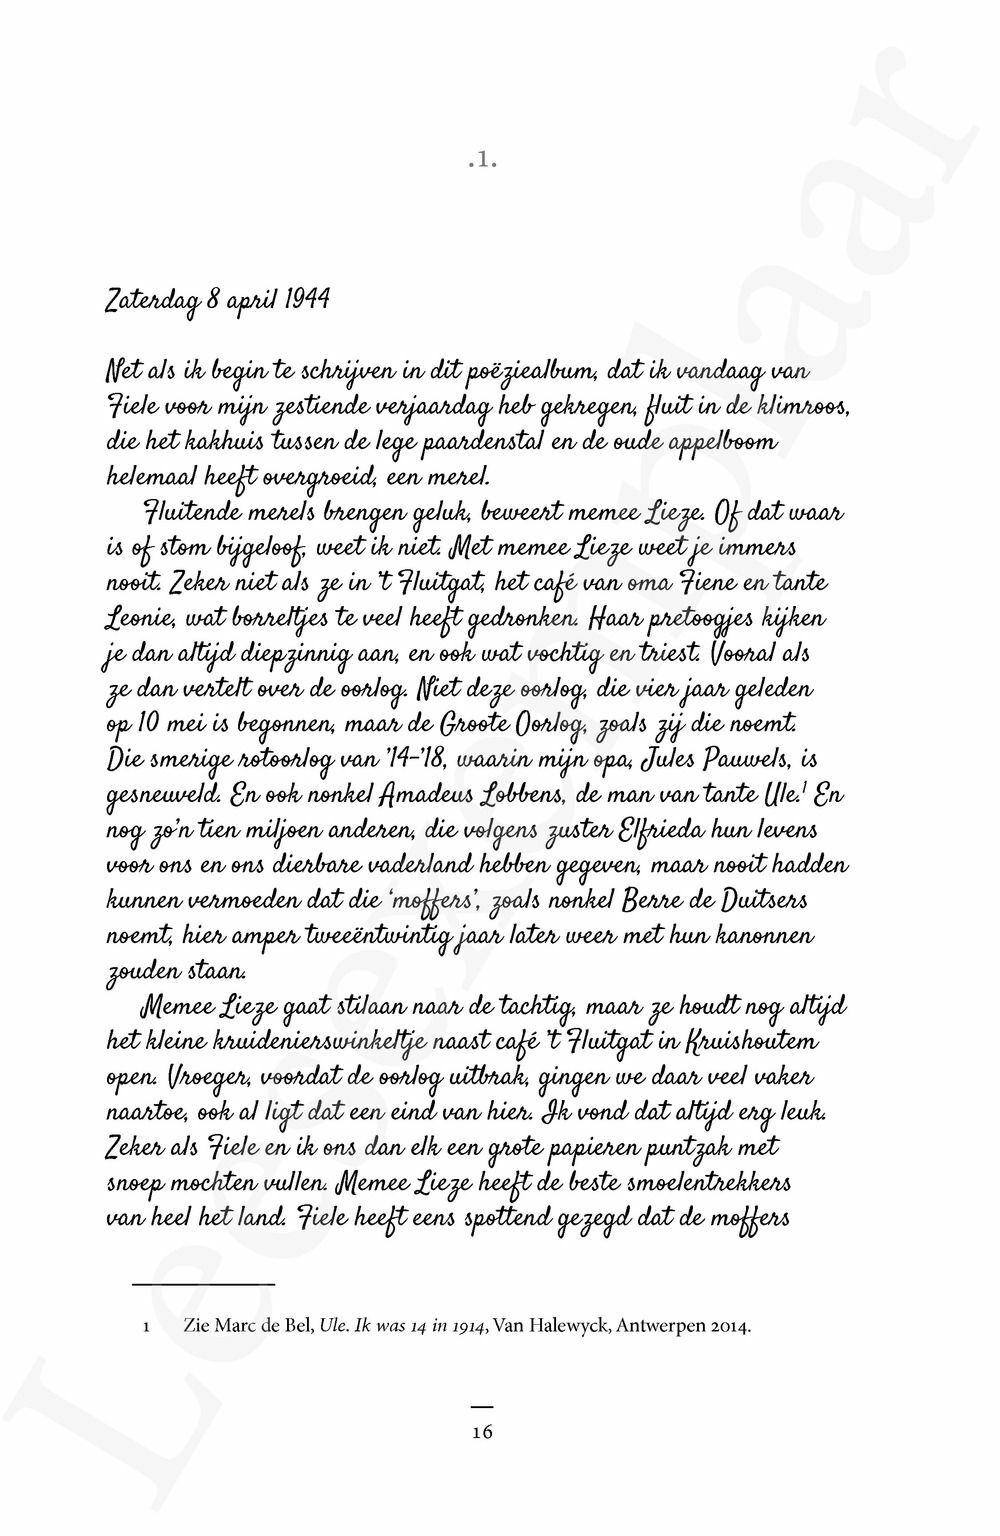 .1.
Zaterdag 8 april 1944
Net als ik begin te schrijven in dit poëziealbum, dat ik vandaag van
Fiele voor mijn zestiende verjaardag heb gekregen, fluit in de klimroos,
die het kakhuis tussen de lege paardenstal en de oude appelboom
helemaal heeft overgroeid, een merel.
Fluitende merels brengen geluk, beweert memee Lieze. Of dat waar
is of stom bijgeloof, weet ik niet. Met memee Lieze weet je immers
nooit. Zeker niet als ze in 't Fluitgat, het café van oma Fiene en tante
Leonie, wat borreltjes te veel heeft gedronken. Haar pretoogjes kijken
je dan altijd diepzinnig aan, en ook wat vochtig en triest. Vooral als
ze dan vertelt over de oorlog. Niet deze oorlog, die vier jaar geleden
op 10 mei is begonnen, maar de Groote Oorlog, zoals zij die noemt.
Die smerige rotoorlog van '14-'18, waarin mijn opa, Jules Pauwels, is
gesneuveld. En ook nonkel Amadeus Lobbens, de man van tante Ule.¹ En
nog zo'n tien miljoen anderen, die volgens zuster Elfrieda hun levens
voor ons en ons dierbare vaderland hebben gegeven, maar nooit hadden
kunnen vermoeden dat die 'moffers', zoals nonkel Berre de Duitsers
noemt, hier amper tweeëntwintig jaar later weer met hun kanonnen
zouden staan.
Memee Lieze gaat stilaan naar de tachtig, maar ze houdt nog altijd
het kleine kruidenierswinkeltje naast café 't Fluitgat in Kruishoutem
open. Vroeger, voordat de oorlog uitbrak, gingen we daar veel vaker
naartoe, ook al ligt dat een eind van hier. Ik vond dat altijd erg leuk.
Zeker als Fiele en ik ons dan elk een grote papieren puntzak met
snoep mochten vullen. Memee Lieze heeft de beste smoelentrekkers
van heel het land. Fiele heeft eens spottend gezegd dat de moffers
1 Zie Marc de Bel, Ule. Ik was 14 in 1914, Van Halewyck, Antwerpen 2014.
16
Leesexemplaar